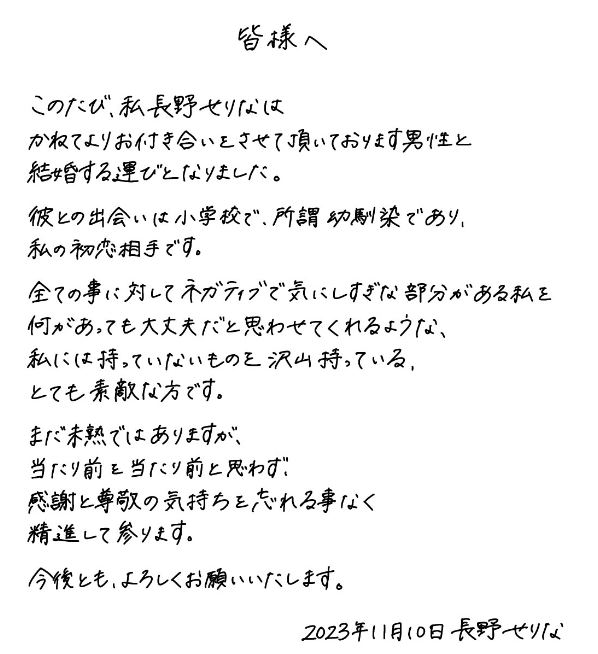 皆様へ
このたび、私長野せりなは
かねてよりお付き合いをさせて頂いております男性と
結婚する運びとなりました。
彼との出会いは小学校で、所謂幼馴染であり、
私の初恋相手です。
全ての事に対してネガティブで気にしすぎな部分がある私を
何があっても大丈夫だと思わせてくれるような、
私には持っていないものを沢山持っている、
とても素敵な方です。
まだ未熟ではありますが、
当たり前を当たり前と思わず、
感謝と尊敬の気持ちを忘れる事なく
精進して参ります。
今後とも、よろしくお願いいたします。
2023年11月10日 長野せりな